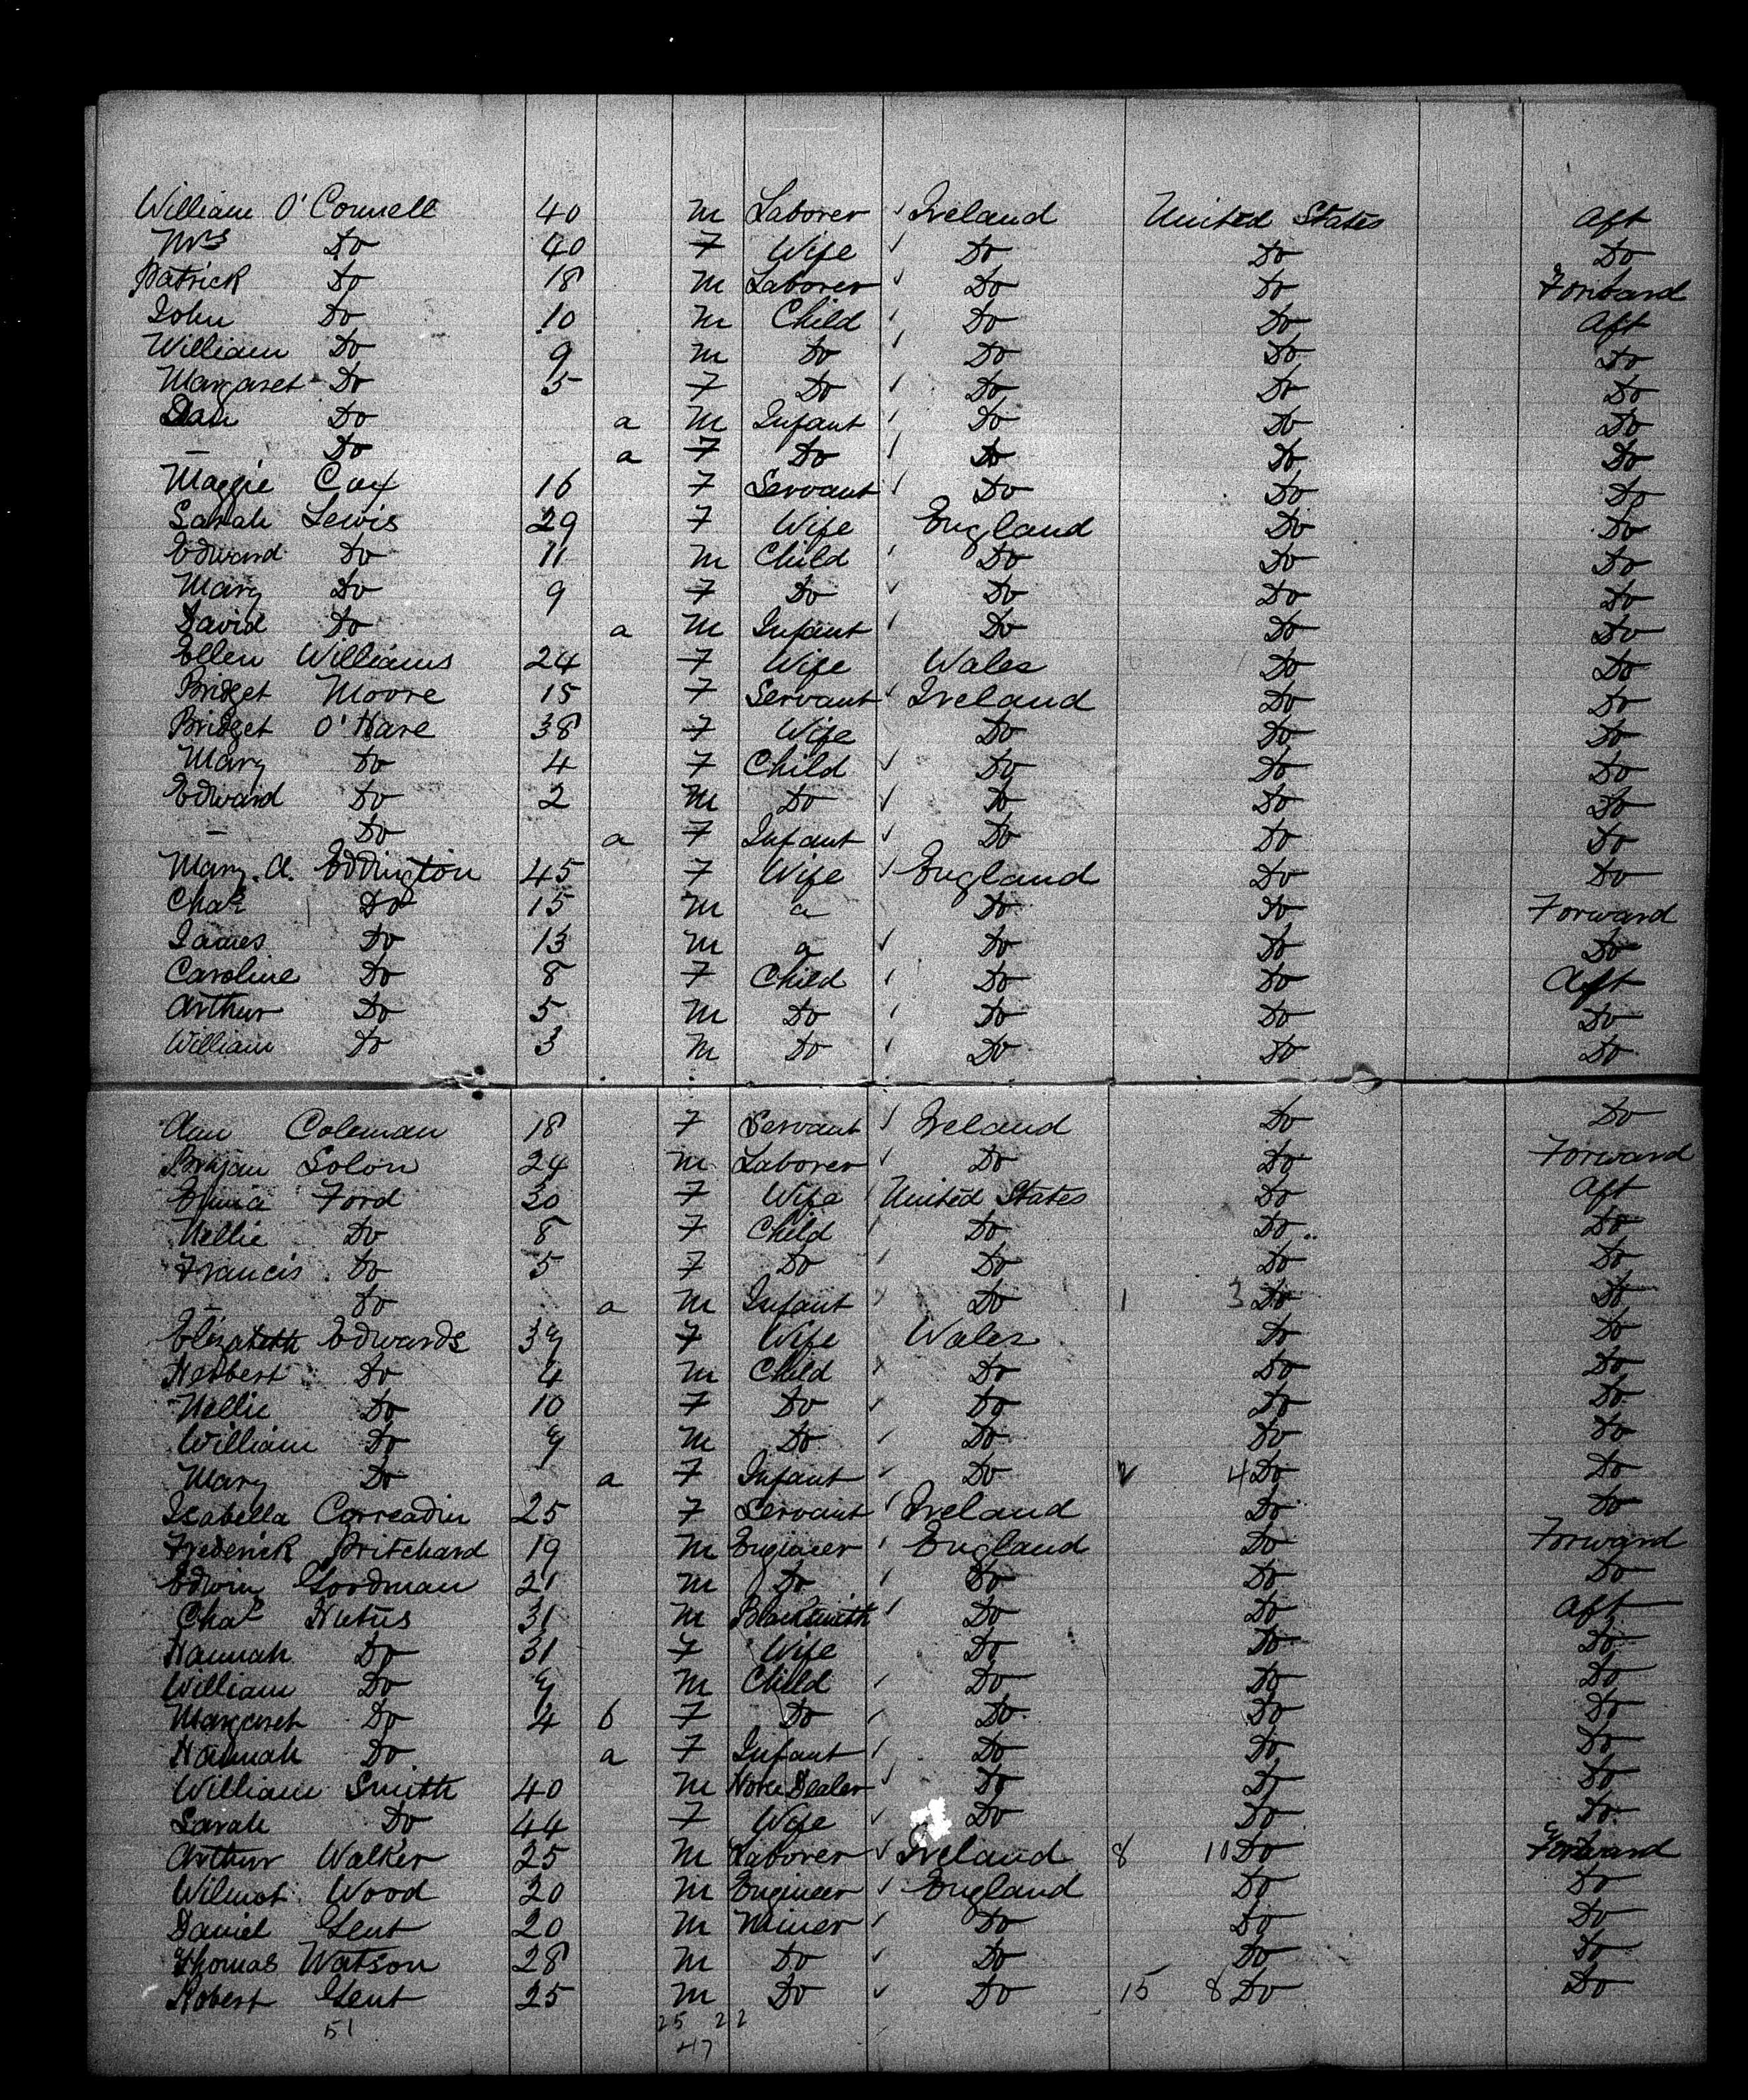 William O'Connell 40 M Laborer ✓ Ireland United States Aft
Mrs Do 40 F Wife ✓ Do Do Do
Patrick Do 18 M Laborer ✓ Do Do Forward
John Do 10 M Child ✓ Do Do Aft
William Do 9 M Do ✓ Do Do Do
Margaret Do 5 F Do ✓ Do Do Do
Dan Do a M Infant ✓ Do Do Do
— Do a F Do ✓ Do Do Do
Maggie Cox 16 F Servant ✓ Do Do Do
Sarah Lewis 29 F Wife England Do Do
Edward Do 11 M Child ✓ Do Do Do
Mary Do 9 F Do ✓ Do Do Do
David Do a M Infant ✓ Do Do Do
Ellen Williams 24 F Wife Wales Do Do
Bridget Moore 15 F Servant ✓ Ireland Do Do
Bridget O'Hare 38 F Wife Do Do Do
Mary Do 4 F Child ✓ Do Do Do
Edward Do 2 M Do ✓ Do Do Do
— Do a F Infant ✓ Do Do Do
Mary. A. Eddington 45 F Wife ✓ England Do Do
Chas Do 15 M a Do Do Forward
James Do 13 M a ✓ Do Do Do
Caroline Do 8 F Child ✓ Do Do Aft
Arthur Do 5 M Do ✓ Do Do Do
William Do 3 M Do ✓ Do Do Do
Ann Coleman 18 F Servant ✓ Ireland Do Do
Solon 24 M Laborer ✓ Do Do Forward
Emma Ford 30 F Wife United States Do Aft
Nellie Do 8 F Child ✓ Do Do Do
Francis Do 5 F Do ✓ Do Do Do
— Do a M Infant ✓ Do 1 3 Do Do
Elizabeth Edwards 39 F Wife Wales Do Do
Herbert Do 4 M Child ✓ Do Do Do
Nellie Do 10 F Do ✓ Do Do Do
William Do 9 M Do ✓ Do Do Do
Mary Do a F Infant ✓ Do 4 Do Do
Isabella 25 F Servant ✓ Ireland Do Do
Frederick Pritchard 19 M Engineer ✓ England Do Forward
Edwin Goodman 21 M Do ✓ Do Do Do
Chas 31 M Blacksmith ✓ Do Do Aft
Hannah Do 31 F Wife Do Do Do
William Do 9 M Child ✓ Do Do Do
Margaret Do 4 6 F Do ✓ Do Do Do
Hannah Do a F Infant ✓ Do Do Do
William Smith 40 M Horse Dealer ✓ Do Do Do
Sarah Do 44 F Wife ✓ Do Do Do
Arthur Walker 25 M Laborer ✓ Ireland 8 10 Do Forward
Wilmot Wood 20 M Engineer ✓ England Do Do
Daniel Gent 20 M Miner ✓ Do Do Do
Thomas Watson 28 M Do ✓ Do Do Do
Robert Gent 25 M Do ✓ Do 15 8 Do Do
51 25 22
47